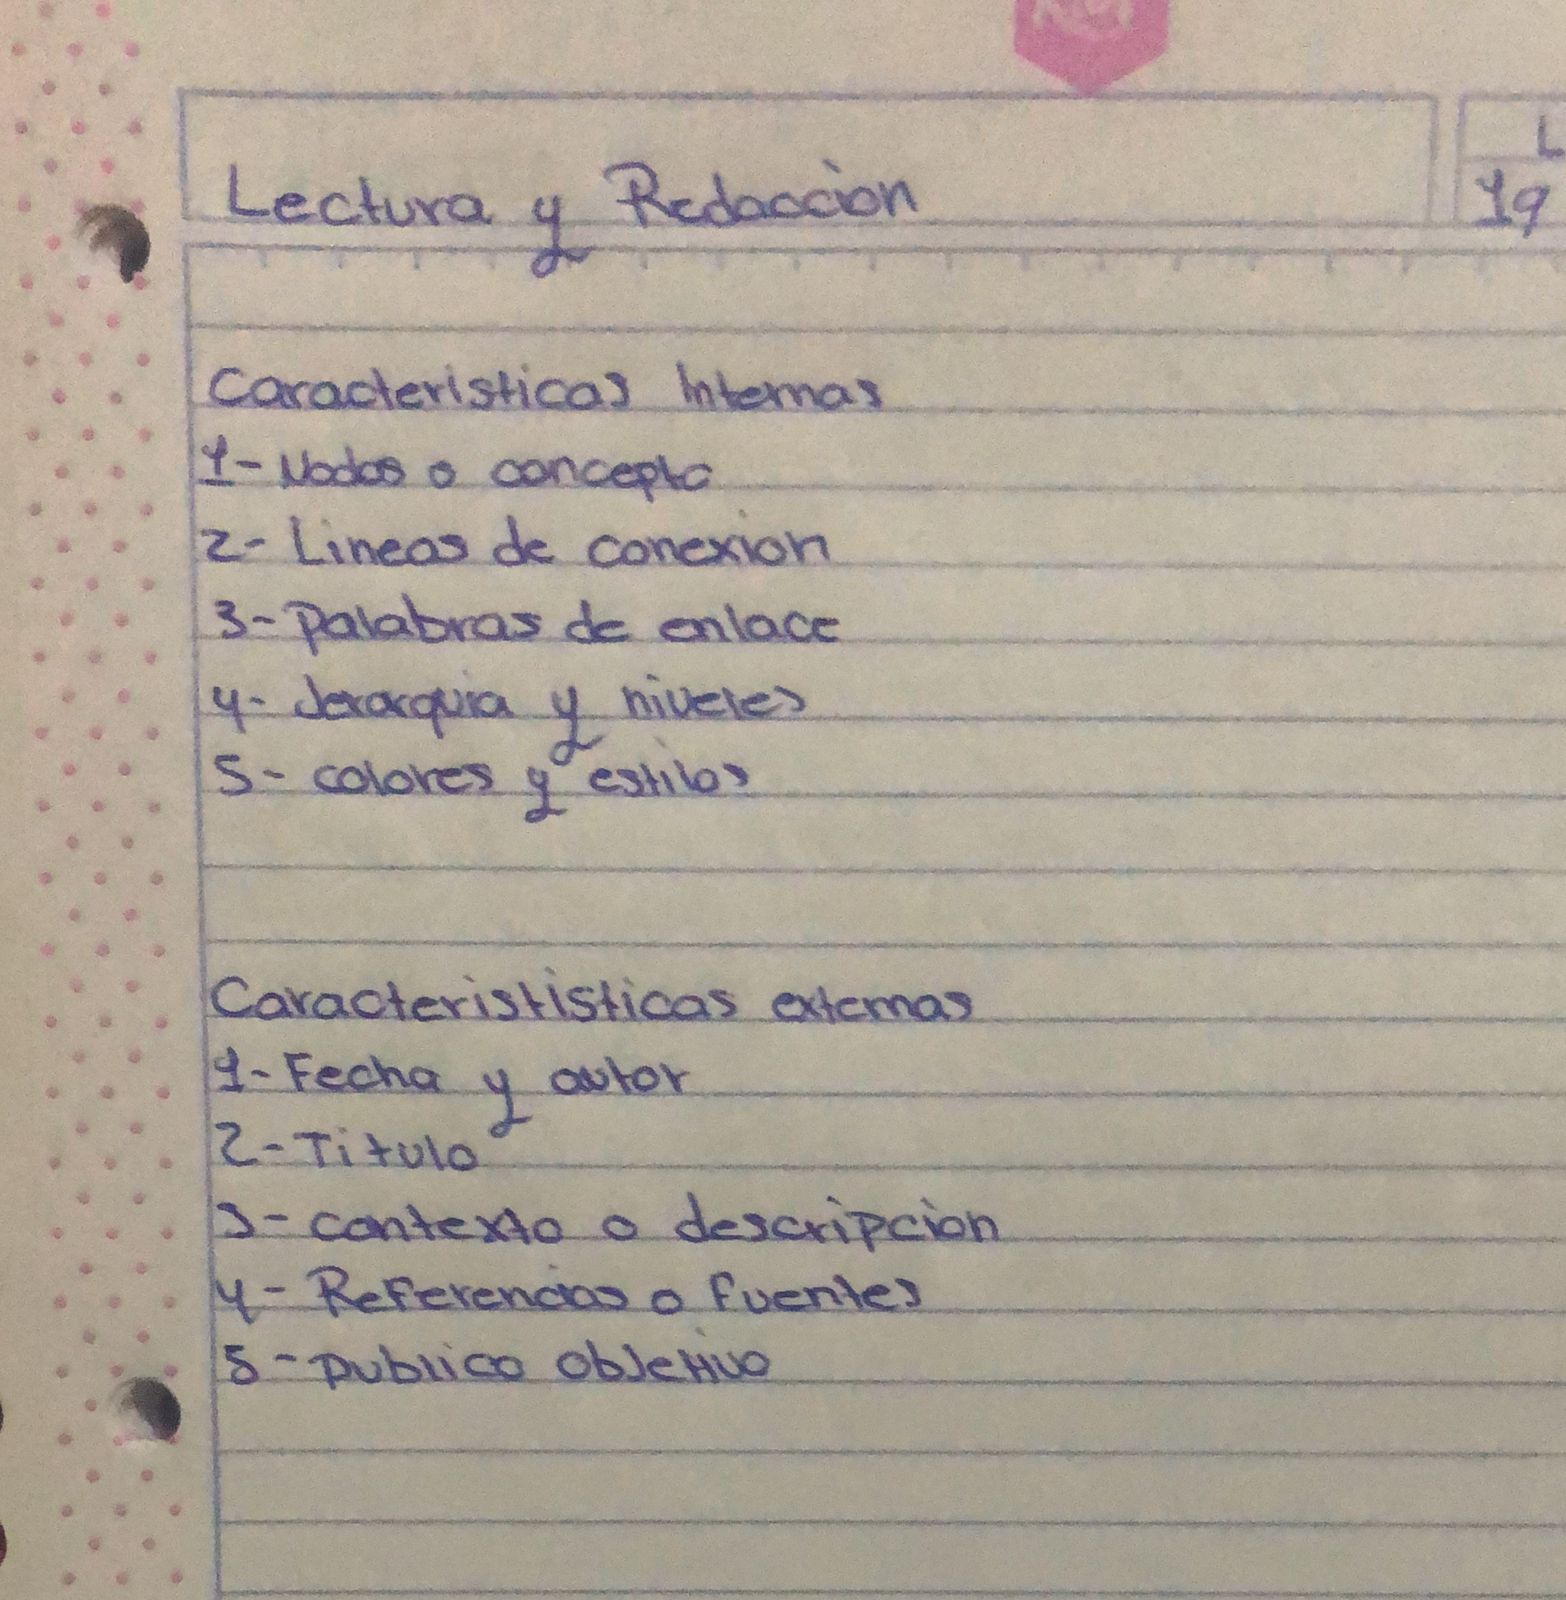 L
Lectura y Redacciòn
19
Caracteristicas Internas
1- Nodos o concepto
2- Lineas de conexion
3- Palabras de enlace
4- Jerarquia y niveles
5- colores y estilos
Carácterististicas externas
1- Fecha y autor
2- Titulo
3- contexto o descripciòn
4- Referencias o fuentes
5- publico objetivo